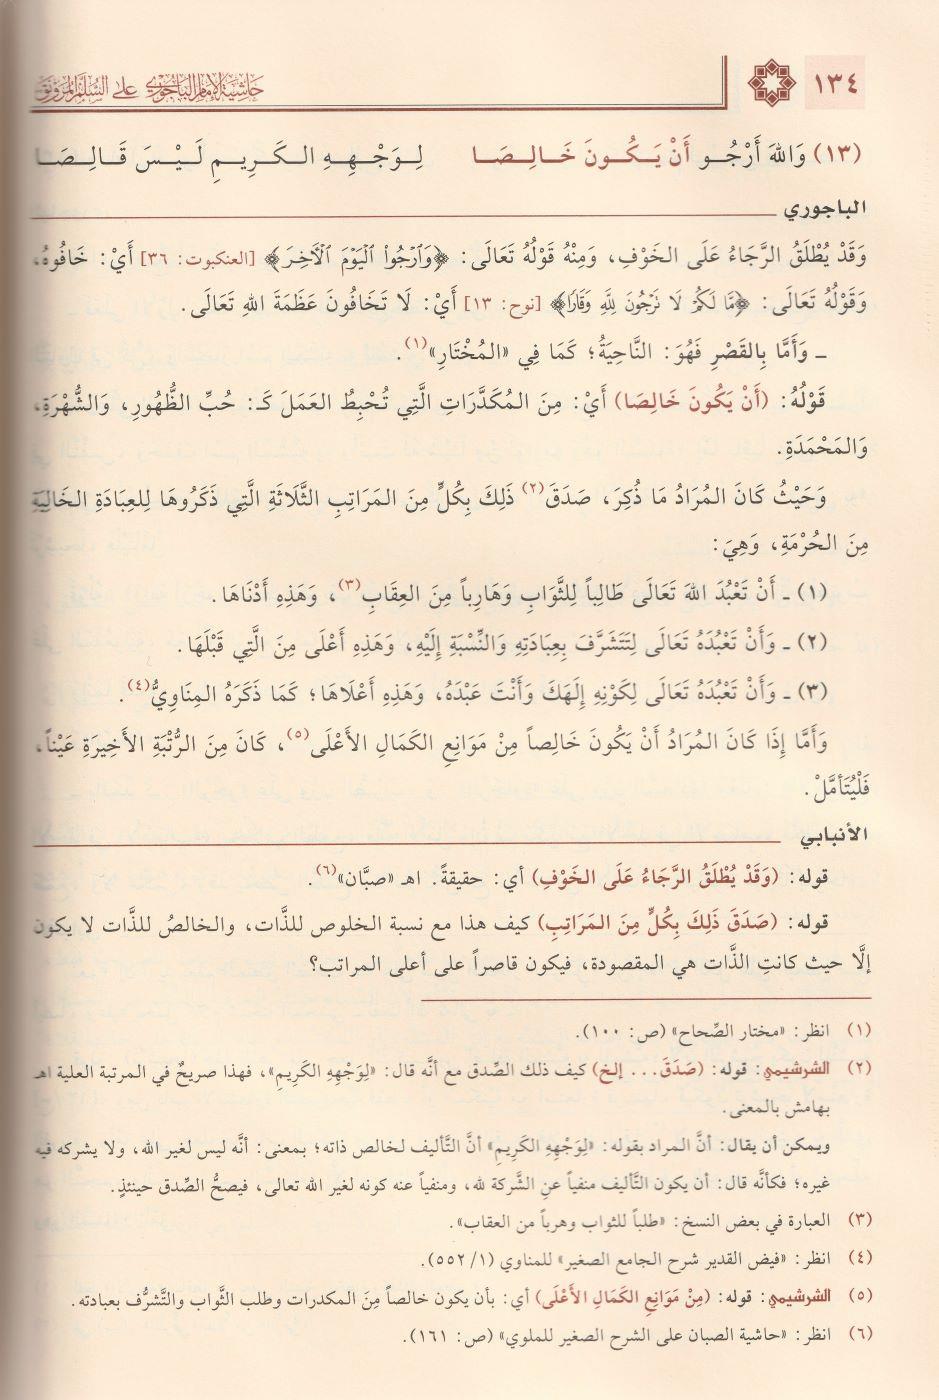 ١٣٤
حاشية الإمام الباجوري على السلم المرونق
(١٣) وَاللهَ أَرْجُــو أَنْ يَـكُــونَ خَـالِـصَـا لِــوَجْــهِــهِ الـكَــرِيــمِ لَــيْــسَ قَــالِــصَــا
الباجوري
وَقَدْ يُطْلَقُ الرَّجَاءُ عَلَى الخَوْفِ، وَمِنْهُ قَوْلُهُ تَعَالَى: ﴿وَٱرْجُوا۟ ٱلْيَوْمَ ٱلْآخِرَ﴾ [العنكبوت: ٣٦] أَيْ: خَافُوهُ،
وَقَوْلُهُ تَعَالَى: ﴿مَّا لَكُمْ لَا تَرْجُونَ لِلَّهِ وَقَارًا﴾ [نوح: ١٣] أَيْ: لَا تَخَافُونَ عَظَمَةَ اللهِ تَعَالَى.
ـ وَأَمَّا بِالقَصْرِ فَهُوَ: النَّاحِيَةُ؛ كَمَا فِي «المُخْتَارِ»(١).
قَوْلُهُ: (أَنْ يَكُونَ خَالِصَا) أَيْ: مِنَ المُكَدَّرَاتِ الَّتِي تُحْبِطُ العَمَلَ كَـ: حُبِّ الظُّهُورِ، وَالشُّهْرَةِ،
وَالمَحْمَدَةِ.
وَحَيْثُ كَانَ المُرَادُ مَا ذُكِرَ، صَدَقَ(٢) ذَلِكَ بِكُلٍّ مِنَ المَرَاتِبِ الثَّلَاثَةِ الَّتِي ذَكَرُوهَا لِلعِبَادَةِ الخَالِيَةِ
مِنَ الحُرْمَةِ، وَهِيَ:
(١) ـ أَنْ تَعْبُدَ اللهَ تَعَالَى طَالِباً لِلثَّوَابِ وَهَارِباً مِنَ العِقَابِ(٣)، وَهَذِهِ أَدْنَاهَا.
(٢) ـ وَأَنْ تَعْبُدَهُ تَعَالَى لِتَتَشَرَّفَ بِعِبَادَتِهِ وَالنِّسْبَةِ إِلَيْهِ، وَهَذِهِ أَعْلَى مِنَ الَّتِي قَبْلَهَا.
(٣) ـ وَأَنْ تَعْبُدَهُ تَعَالَى لِكَوْنِهِ إِلَهَكَ وَأَنْتَ عَبْدَهُ، وَهَذِهِ أَعْلَاهَا؛ كَمَا ذَكَرَهُ المِنَاوِيُّ(٤).
وَأَمَّا إِذَا كَانَ المُرَادُ أَنْ يَكُونَ خَالِصاً مِنْ مَوَانِعِ الكَمَالِ الأَعْلَى(٥)، كَانَ مِنَ الرُّتْبَةِ الأَخِيرَةِ عَيْناً،
فَلْيُتَأَمَّلْ.
الأنبابي
قوله: (وَقَدْ يُطْلَقُ الرَّجَاءُ عَلَى الخَوْفِ) أي: حقيقةً. اهـ «صبَّان»(٦).
قوله: (صَدَقَ ذَلِكَ بِكُلٍّ مِنَ المَرَاتِبِ) كيف هذا مع نسبة الخلوص للذَّات، والخالصُ للذَّات لا يكون
إلَّا حيث كانتِ الذَّات هي المقصودة، فيكون قاصراً على أعلى المراتب؟
(١) انظر: «مختار الصِّحاح» (ص: ١٠٠).
(٢) الشرشيمي: قوله: (صَدَقَ... إلخ) كيف ذلك الصِّدق مع أنَّه قال: «لِوَجْهِهِ الكَرِيمِ»، فهذا صريحٌ في المرتبة العلية اهـ
بهامش بالمعنى.
ويمكن أن يقال: أنَّ المراد بقوله: «لِوَجْهِهِ الكَرِيمِ» أنَّ التَّأليف لخالص ذاته؛ بمعنى: أنَّه ليس لغير الله، ولا يشركه فيه
غيره؛ فكأنَّه قال: أن يكون التَّأليف منفياً عنِ الشَّركة لله، ومنفياً عنه كونه لغير الله تعالى، فيصحُّ الصِّدق حينئذٍ.
(٣) العبارة في بعض النسخ: «طلباً للثواب وهرباً من العقاب».
(٤) انظر: «فيض القدير شرح الجامع الصغير» للمناوي (١/ ٥٥٢).
(٥) الشرشيمي: قوله: (مِنْ مَوَانِعِ الكَمَالِ الأَعْلَى) أي: بأن يكون خالصاً مِنَ المكدرات وطلب الثَّواب والتَّشرُّف بعبادته.
(٦) انظر: «حاشية الصبان على الشرح الصغير للملوي» (ص: ١٦١).